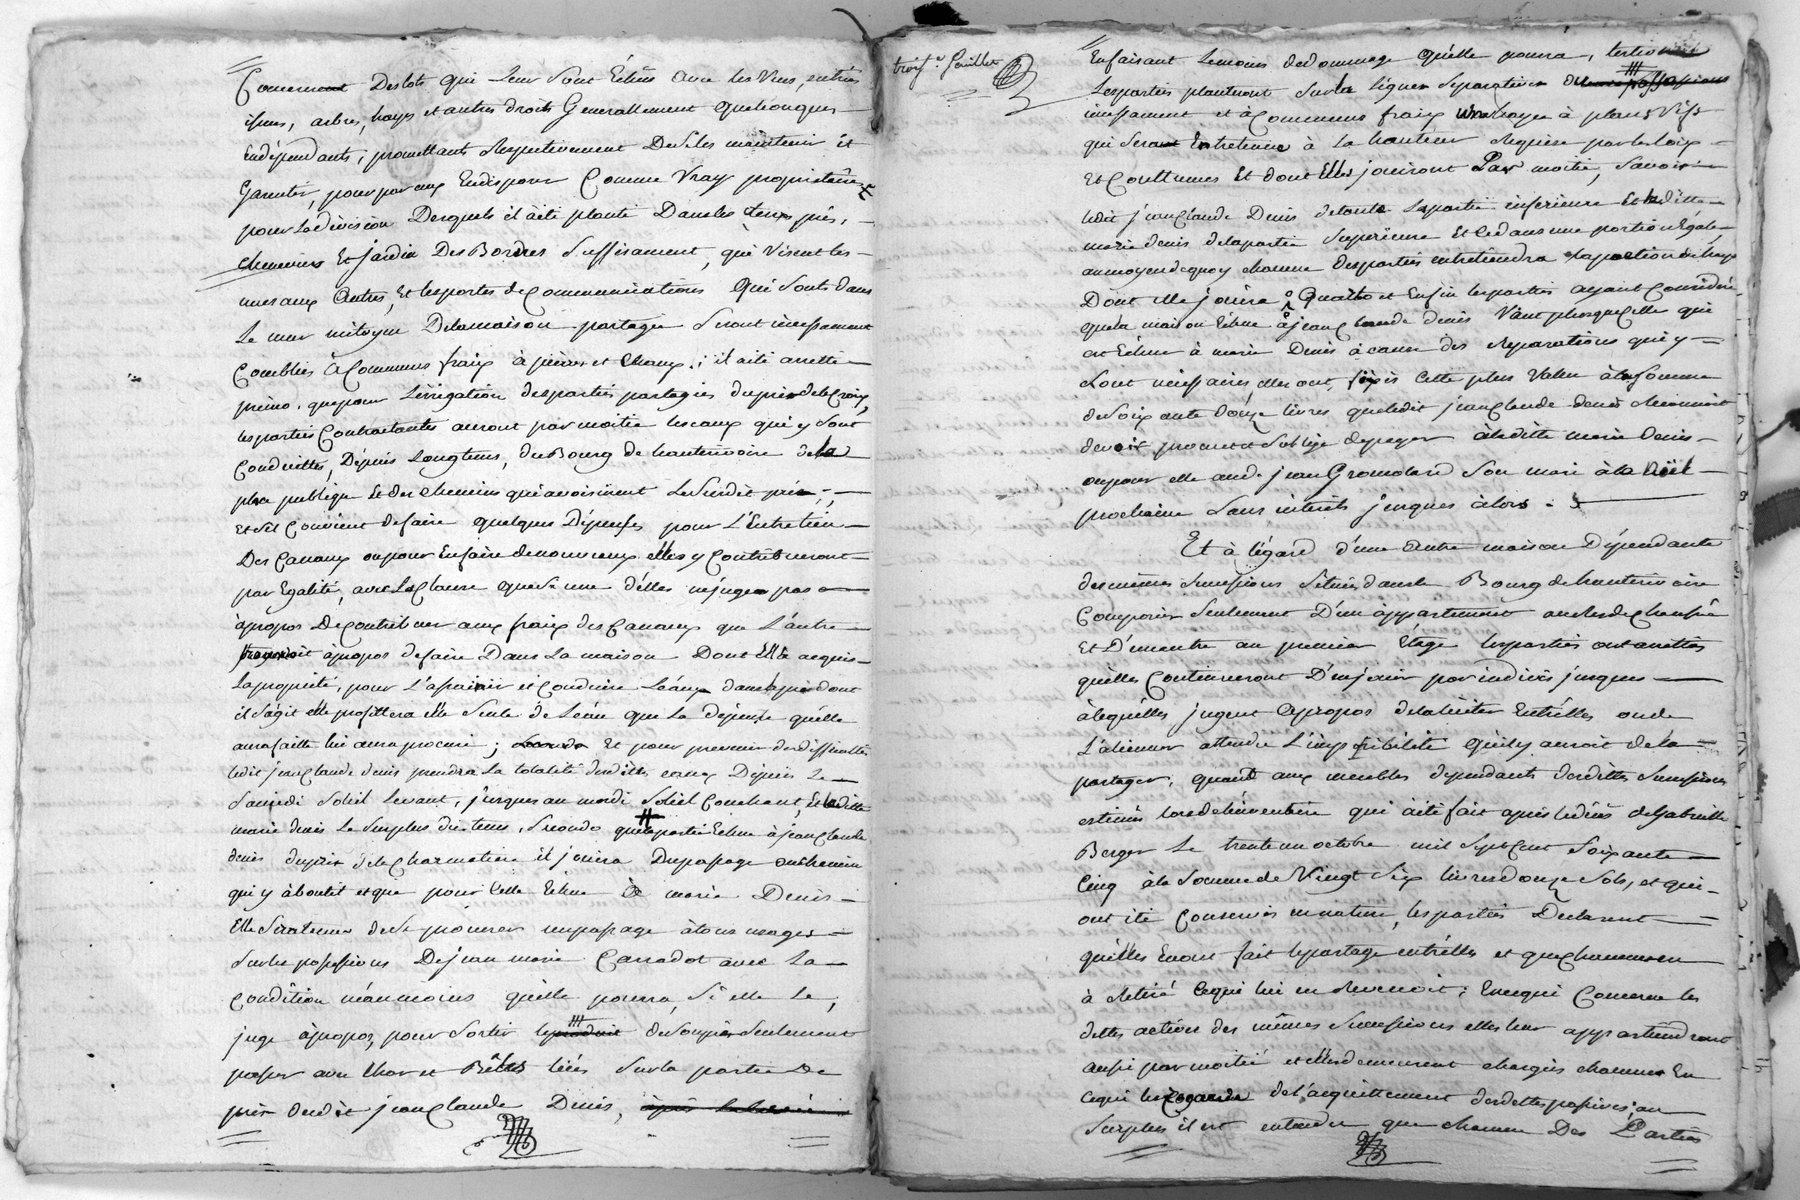 Concernant Des lots qui leur sont Echus avec les vues, entrées
issues, arbres, hayes et autres droits Generallement quelconques
Endépendants; promettants Respectivement De se les maintenir et
Garantir, pour par eux Endisposer Comme Vray propriétaires
pour la division Desquels il a été planté Dans les terres prés,
cheneviers Et jardin Des Bornes suffisament, qui visent les
unes aux autres, Et les portes de communications qui sont dans
Le mur mitoyen De la maison partagée seront incessamment
comblées à communs fraix à pierres et chaux; il a été arretté
primo. que pour L'irrigation des parties partagées du pré de la Croix,
les parties Contractantes auront par moitié les eaux qui y sont
conduittes, Depuis Longtems, du Bourg de hauterivoire de la
place publique Et des chemins qui avoisinent Le susdit pré;
Et s'il convient de faire quelques Dépenses pour L'Entretien
Des Canaux ou pour En faire de nouveaux elles y Contribueront
par Egalité, avec La Clause que si une d'elles ne juge pas
àpropos De contribuer aux fraix des Canaux que L'autre
àpropos de faire Dans La maison Dont Elle acquis
La propriété, pour L'
il s'agit elle profittera elle seule de Léau que La dépense qu'elle
aura faitte lui aura procuré; Et pour prevenir des difficultés
ledit jean Claude denis prendra La totalité desdittes eaux Depuis Le
samedi soleil levant, jusques au mardi soleil couchant, Et laditte
marie denis Le surplus du tems. Secondo que la partie Echue à jean Claude
denis du pré de la Charmatière il jouira Du passage ou chemin
qui y aboutit et que pour celle Echue à marie Denis
Elle sera tenue de se procurer un passage à tous usages
sur les possessions De jean marie Carradot avec La
condition néanmoins qu'elle pourra, si elle le
juge àpropos, pour sortir seulement
passer avec char et Bêtes liées sur la partie De
pré dudit jean Claude Denis,
trois.e feuillet
En faisant Le moins de dommage qu'elle pourra, tertio
Les parties planteront sur la ligne séparative
incessament et à communs fraix une haye à plants vifs
qui sera Entretenue à la hauteur requise par les loix
Et Couttumes Et dont Elles jouiront Par moitié, savoir
ledit jean Claude Denis de toute la partie inférieure Et laditte
marie denis de la partie supérieure Et ce dans une portion Egale,
au moyen de quoy chacune des parties entretiendra la portion de haye
Dont elle jouira Quarto et Enfin les parties ayant considéré
que la maison Echue à jean Claude denis Vaut plus que celle qui
est Echue à marie Denis à cause des réparations qui y
sont nécessaires elles ont fixé cette plus value à la somme
de soixante douze livres que ledit jean Claude denis reconnoit
devoir promet et s'oblige de payer à laditte marie Denis
ou pour elle aud. jean Gromolard son mari à la Noël
prochaine sans intérêts jusques alors.
Et à l'égard d'une autre maison Dépendante
des mêmes successions située dans le Bourg de hauterivoire
Composée seulement D'un appartement au rez de chaussée
Et D'un autre au premier Etage les parties ont arretté
qu'elles continueront D'en jouir par indivis jusques
à ce qu'elles jugent àpropos de la liciter Entr'elles ou de
L'aliener attendu L'impossibilité qu'il y auroit de la
partager, quant aux meubles dépendants desdittes successions
estimés lors de l'inventaire qui a été fait après le décès de Gabrielle
Berger Le trente un octobre mil sept cent soixante
Cinq à la somme de Vingt six livres douze sols, et qui
ont été conservés en nature, les parties Declarent
qu'elles En ont fait le partage entr'elles et que chacune en
à retiré ce qui lui en revenoit; En ce qui concerne les
dettes actives des mêmes successions elles leur appartiendront
aussi par moitié et elles demeurent chargées chacune En
ce qui les regarde de l'acquittement des dettes passives; au
surplus il est entendu que chacune Des Parties